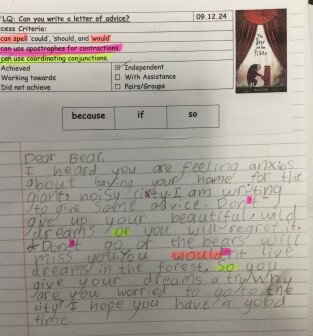 LQ: Can you write a letter of advice?
09.12.24
cess Criteria:
can spell 'could', 'should, and 'would'
can use apostrophes for contractions.
can use coordinating conjunctions.
Achieved
Independent
Working towards
With Assistance
Did not achieve
Pairs/Groups
The Bear and the Piano
because if so
Dear Bear,
I heard you are feeling anxios
about laving your home for the
giant noisy city. I am writing
to give some advice. Don't
give up your beautiful wild
dreams or you will regret it.
Don't go or the bears will
miss you. You wouldn't live
dreams in the forest. So you
give your dreams a try. Why
are you worried to go to the
city? I hope you have a good
time.